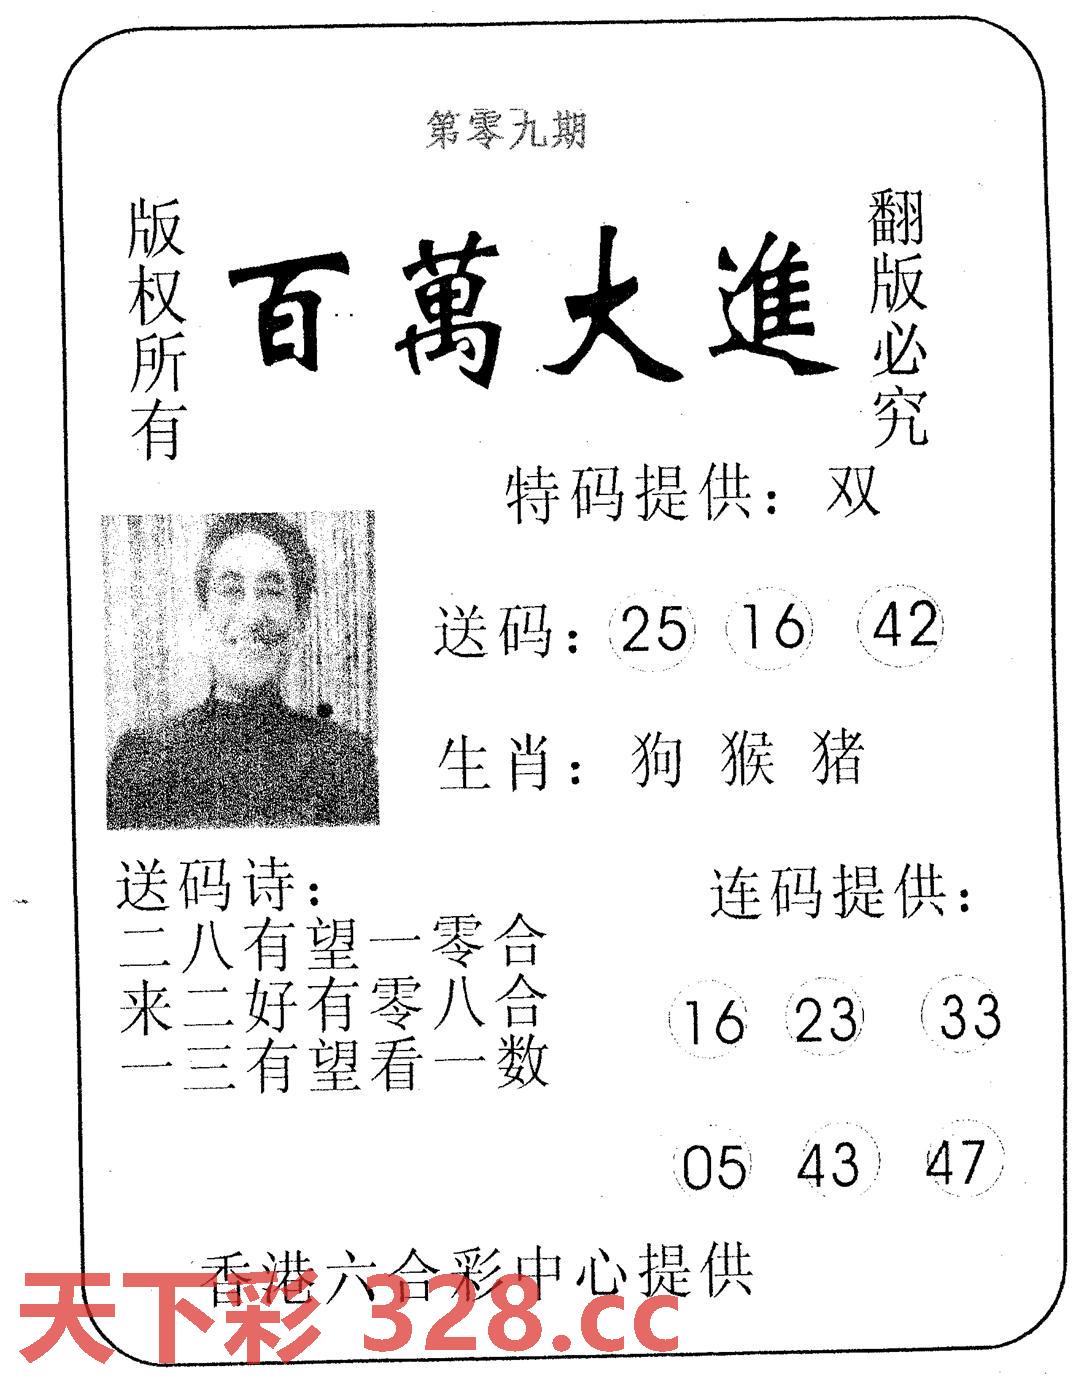 第零九期
版权所有
百萬大進
翻版必究
特码提供：双
送码：25 16 42
生肖：狗 猴 猪
送码诗：
二八有望一零合
来二好有零八合
一三有望看一数
连码提供：
16 23 33
05 43 47
香港六合彩中心提供
天下彩 328.cc